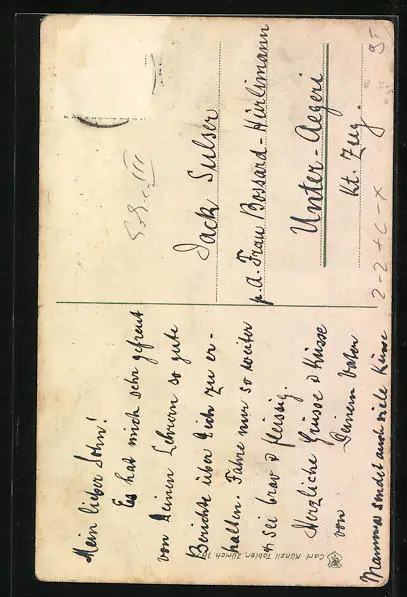 Mein lieber Sohn!
Es hat mich sehr gefreut
von Deinen Lehrern so gute
Berichte über Dich zu er-
halten. Fahre nur so weiter
& sei brav & fleissig.
Herzliche Grüsse & Küsse
von Deinem Vater
Mamma sendet auch viele Küsse
Carl Künzli-Tobler, Zürich.
Jack Sulser
p. A. Frau Bossard-Hürlimann
Unter-Aegeri
Kt. Zug.